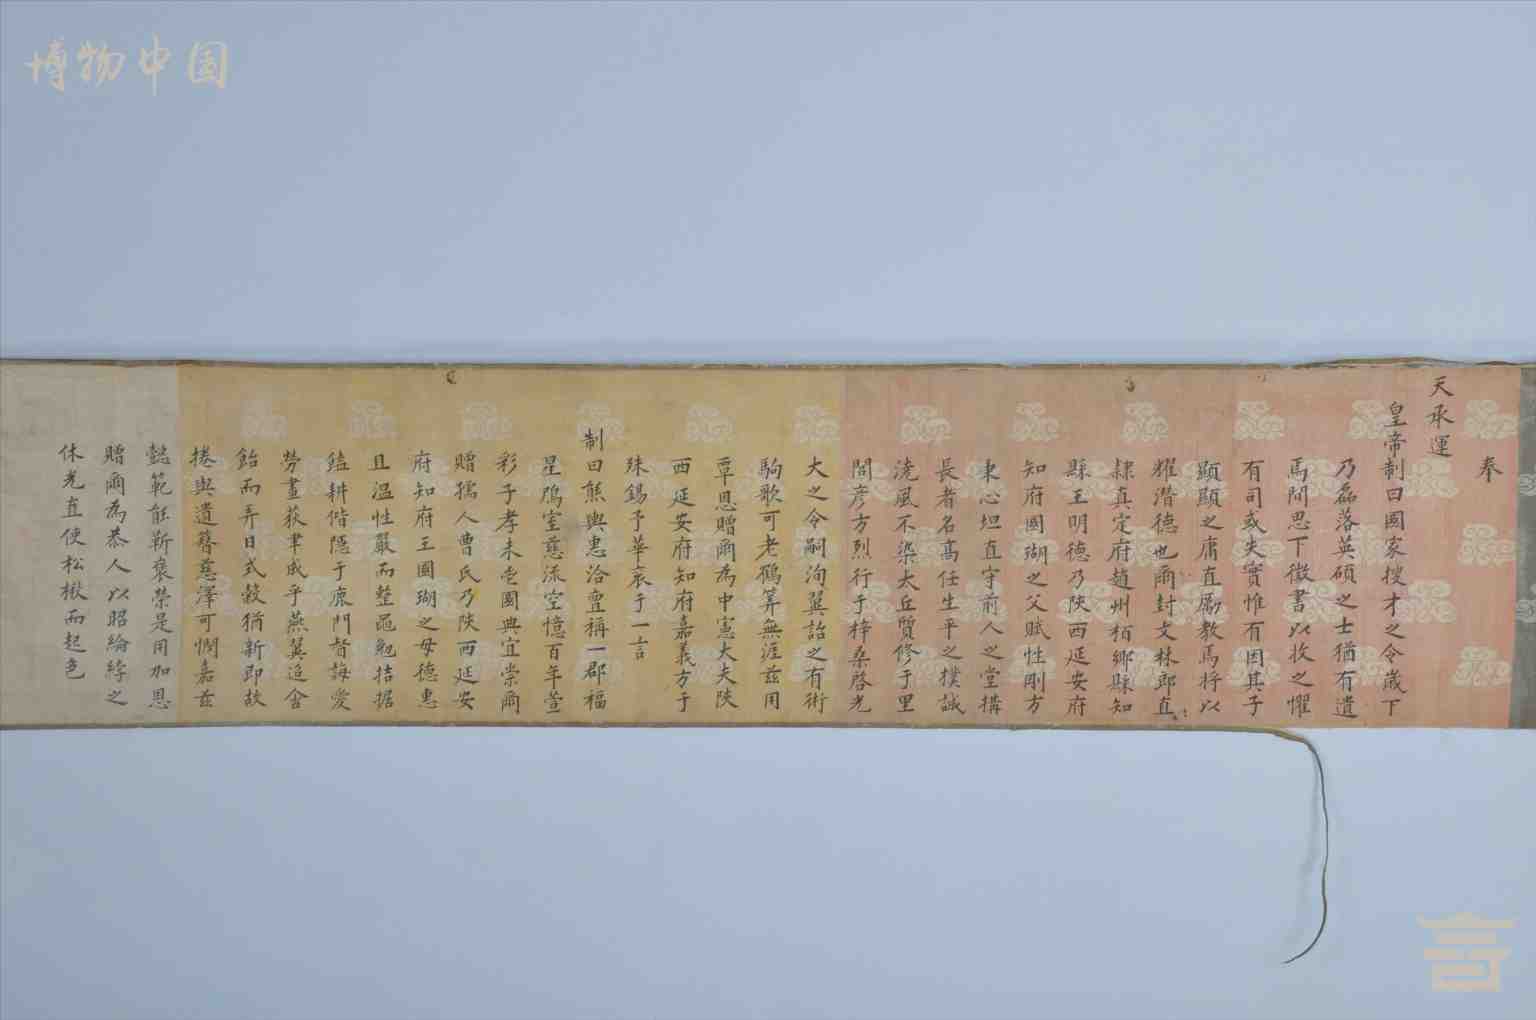 博物中国
奉
天承運
皇帝制曰國家搜才之令歲下
乃磊落英碩之士猶有遺
馬問思下徵書以收之懼
有司或失實惟有因其子
顯顯之庸直厲教焉將以
耀潛德也爾封文林郎直
隸真定府趙州栢鄉縣知
縣王明德乃陝西延安府
知府國瑚之父賦性剛方
秉心坦直守前人之堂搆
長者名高任生平之樸誠
澆風不染太丘質修于里
閭彥方烈行于梓桑啓光
大之令嗣洵翼詒之有術
駒歌可老鶴筭無涯茲用
覃恩贈爾為中憲大夫陝
西延安府知府嘉義方于
殊錫予華袞于一言
制曰熊輿惠洽亶稱一郡福
星鴈室慈流空憶百年萱
彩子孝未忘國典宜崇爾
贈孺人曹氏乃陝西延安
府知府王國瑚之母德惠
且溫性嚴而整黽勉拮据
饁耕偕隱于鹿門耆誨愛
勞畫荻聿成乎燕翼追含
飴而弄日式穀猶新即故
捲與遺簪慈澤可憫嘉茲
懿範能靳褒榮是用加恩
贈爾為恭人以昭綸綍之
休光直使松楸而起色